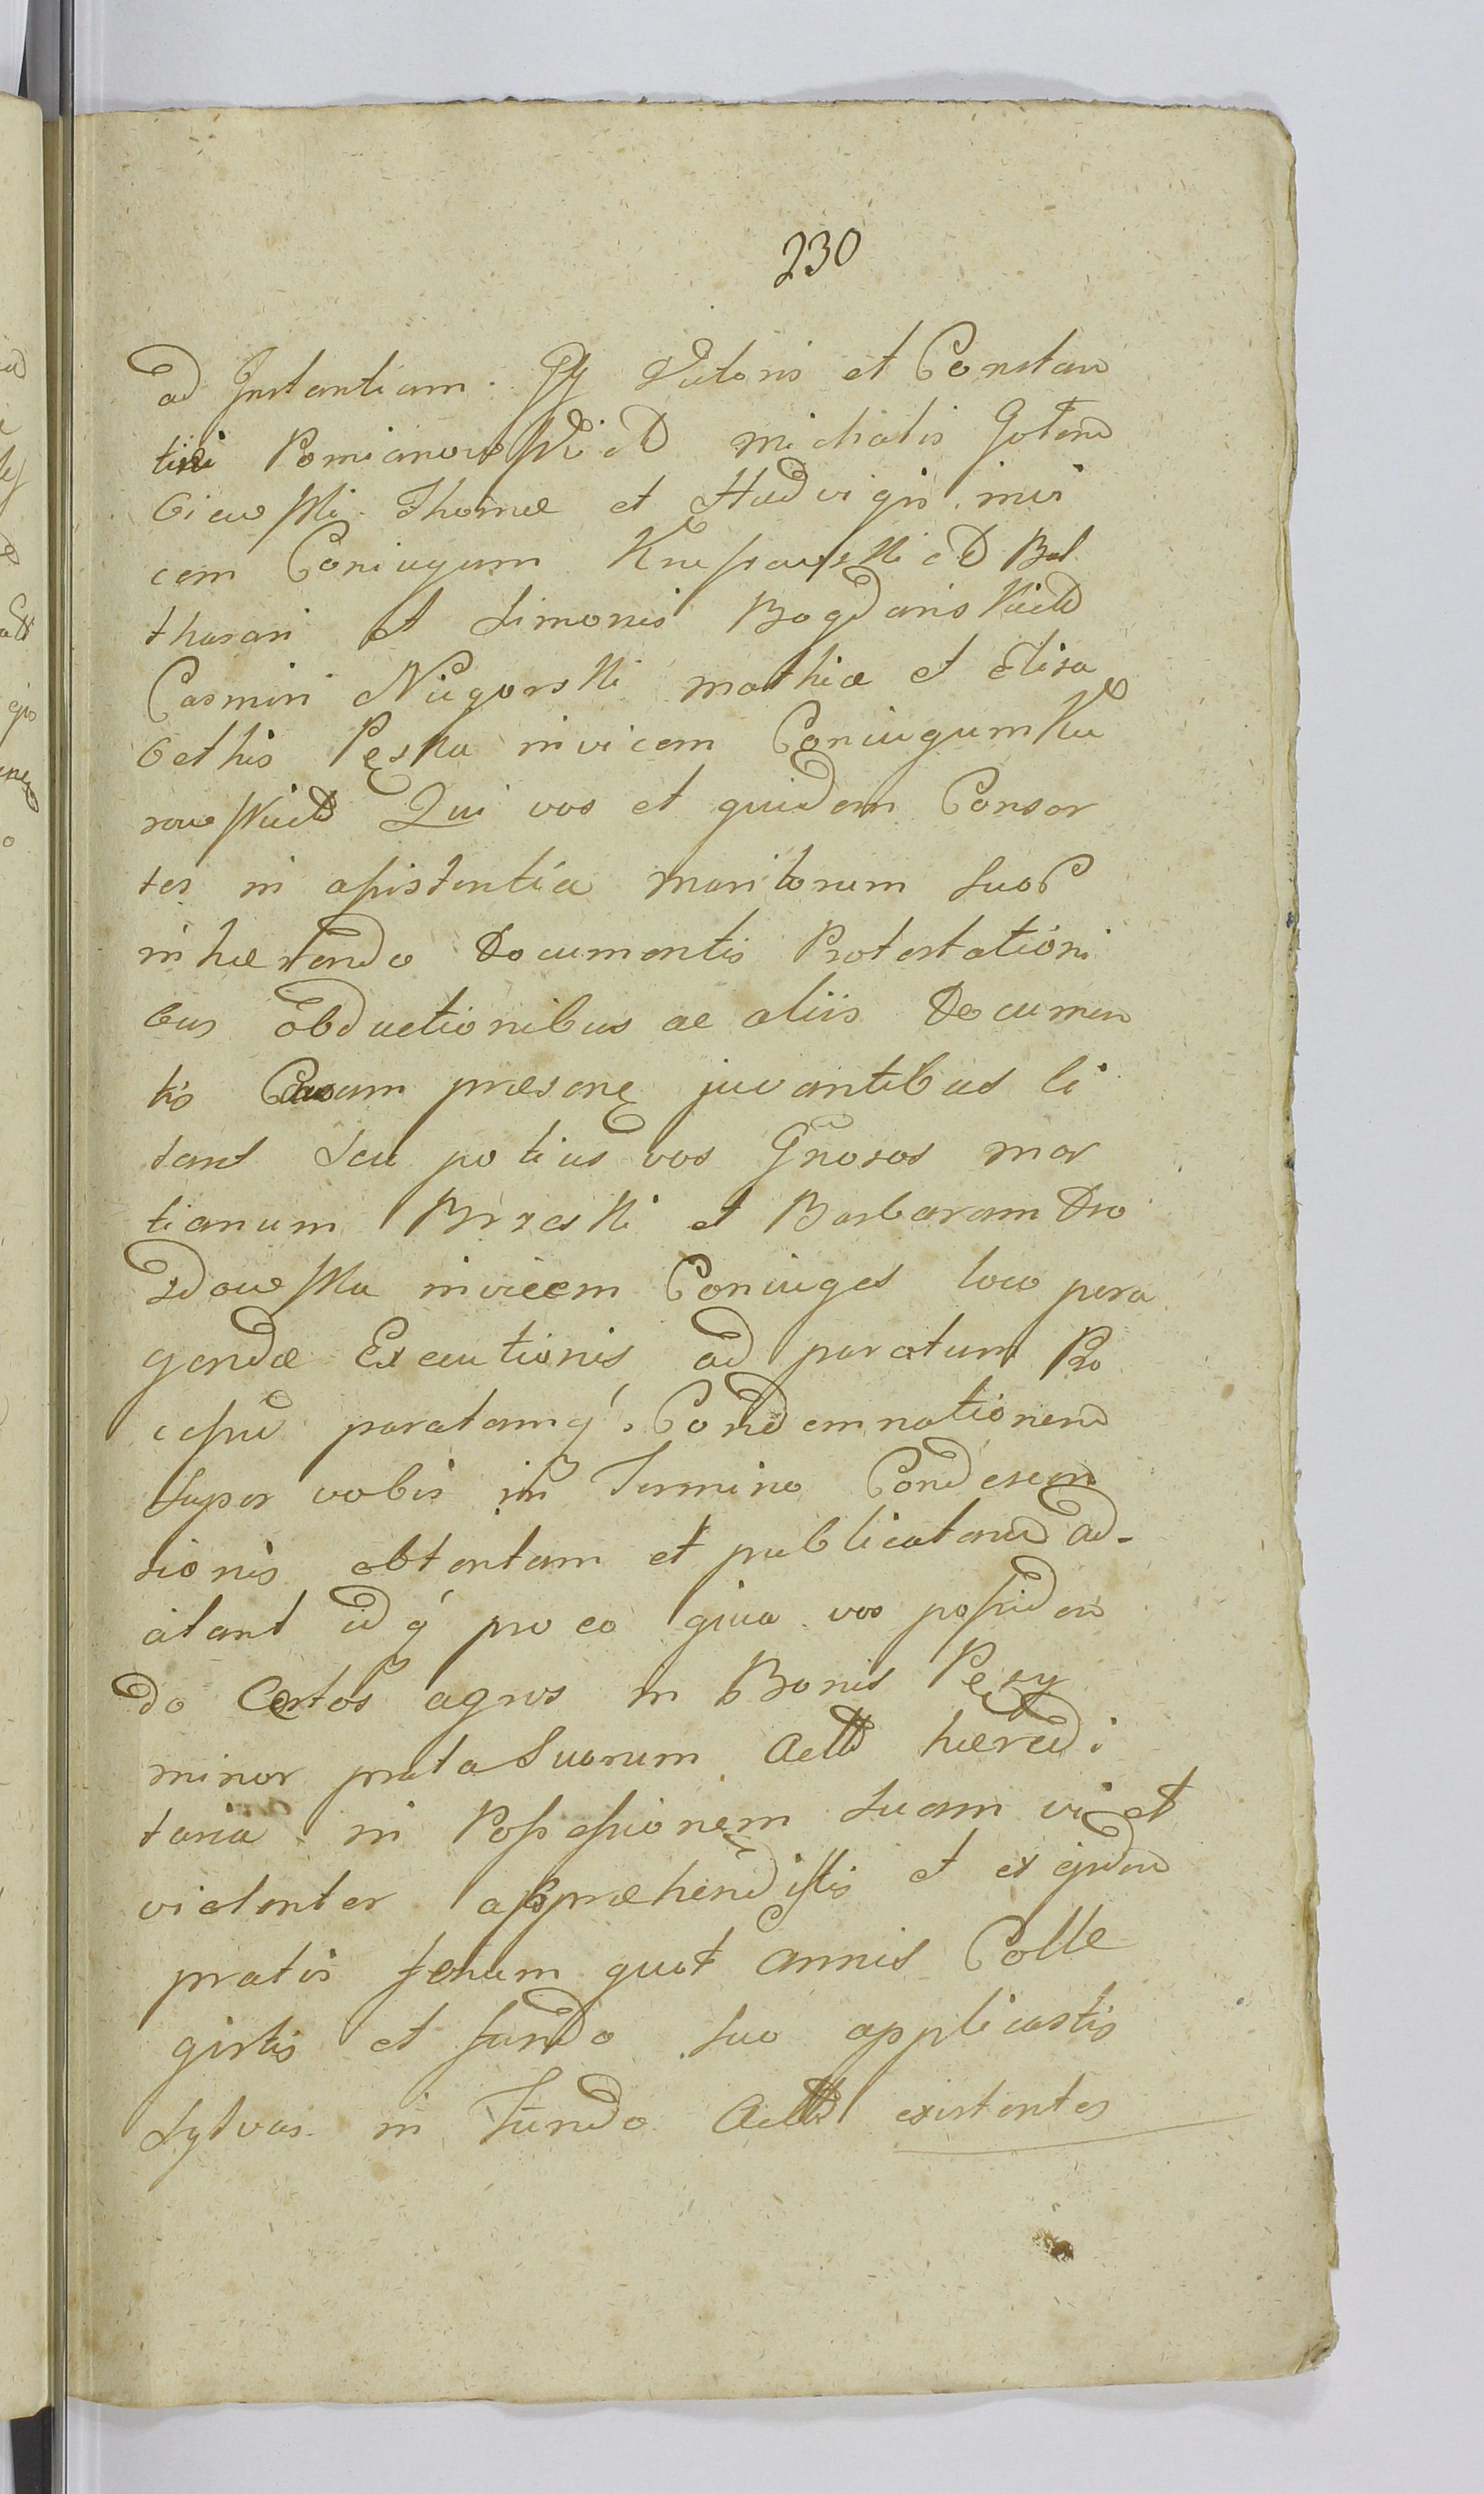 230
ad Instantiam. GG Victoris et Constan
tini Pomianowski et michalis Golem
biewski Thomæ et Hedvigis invi
cem Coniugum Krussewski et Bal
thasari et Simonis Bogdanski et
Casimiri Niegowski mathiæ et Elisa
bethis Pęska invicem Coniugum Ku
rowski et Qui vos et quidem Consor
tes in assistentia maritorum suor
inhærendo Documentis Protestationi
bus obductionibus ac aliis Documen
tis Causam præsenę juvantibus ci
tant Seu potius vos Gnosos mar
tianum Brzeski et Barbaram Dro
zdowska invicem Coniuges loco pera
gendæ Executionis ad paratum Pro
cessu paratamq́ Condemnationem
super vobis in Termino Condescen
sionis obtentam et publicatam ad-
citant id q́ pro eo quia vos possiden
do Certos agros in Bonis Pęsy
minor prata Suorum Actt hæredi
taria in Possessionem suam vi et
violenter appræhendistis et ex ejsdem
pratis fenum quot annis Colle
gistis et fundo suo applicastis
Sylvas in Fundo Actt existentes